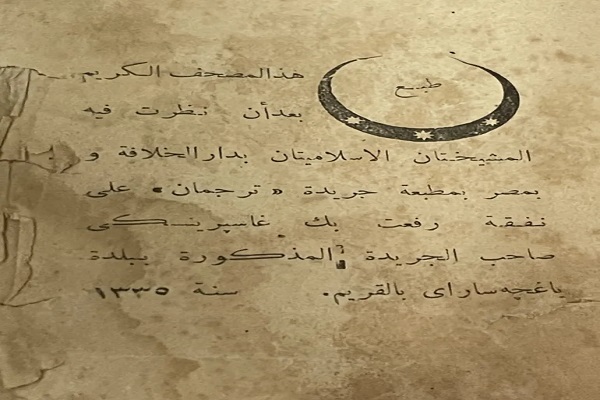 طبع
هذا المصحف الكريم
بعد أن نظرت فيه
المشيختان الاسلاميتان بدار الخلافة و
بمصر بمطبعة جريدة « ترجمان » على
نفقة رفعت بك غاسپرينسكى
صاحب الجريدة المذكورة ببلدة
باغچه ساراى بالقريم. سنة ١٣٣٥